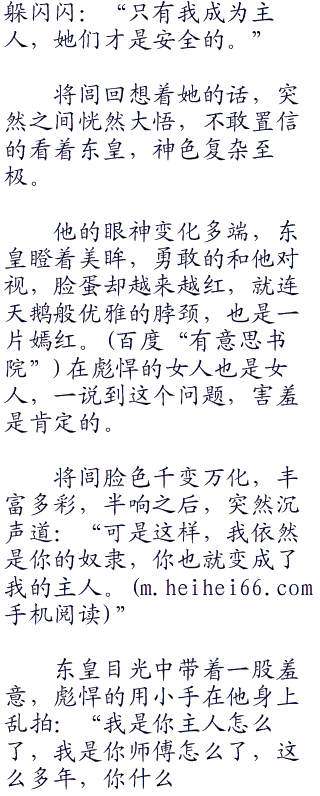 躲闪闪：“只有我成为主
人，她们才是安全的。”
将闾回想着她的话，突
然之间恍然大悟，不敢置信
的看着东皇，神色复杂至
极。
他的眼神变化多端，东
皇瞪着美眸，勇敢的和他对
视，脸蛋却越来越红，就连
天鹅般优雅的脖颈，也是一
片嫣红。(百度“有意思书
院”)在彪悍的女人也是女
人，一说到这个问题，害羞
是肯定的。
将闾脸色千变万化，丰
富多彩，半响之后，突然沉
声道：“可是这样，我依然
是你的奴隶，你也就变成了
我的主人。(m.heihei66.com
手机阅读)”
东皇目光中带着一股羞
意，彪悍的用小手在他身上
乱拍：“我是你主人怎么
了，我是你师傅怎么了，这
么多年，你什么